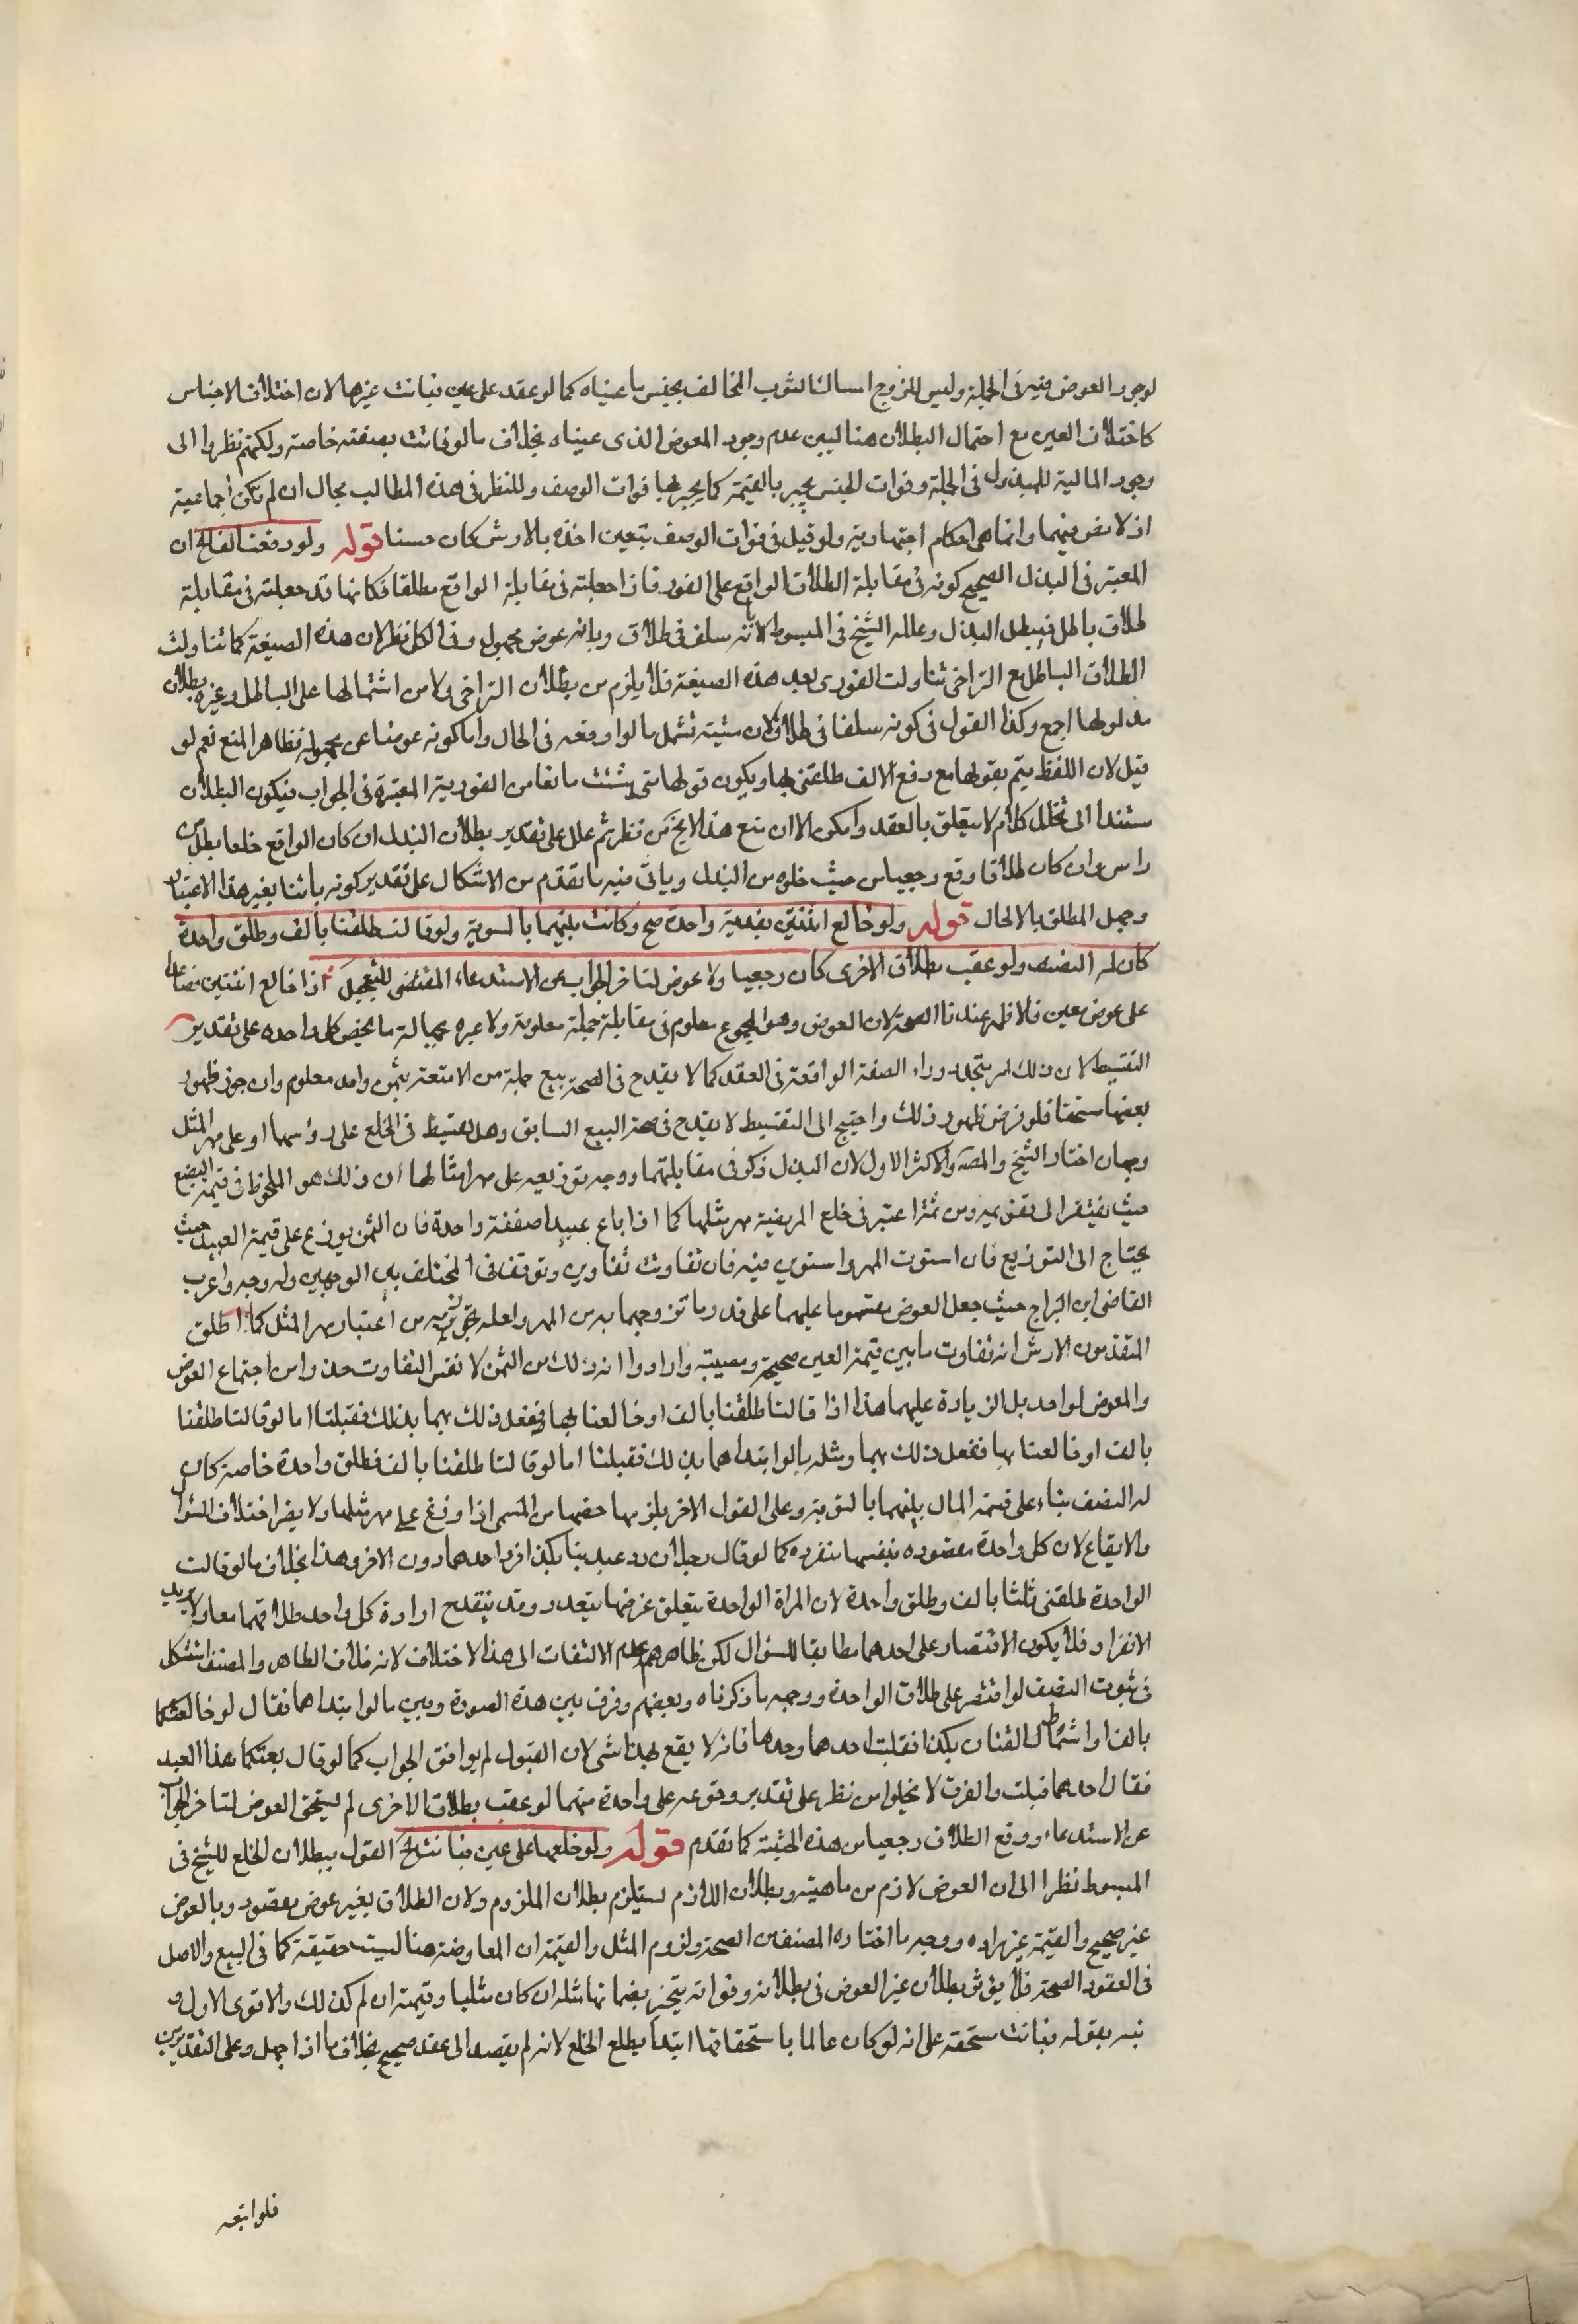 لوجود العوض فيه فى الجملة وليس للزوج امساك الثوب المخالف بجنس ما عيناه كما لو عقد على عين فبانت غيرها لان اختلاف الاجناس
كاختلاف العين مع احتمال البطلان هنا ليبين عدم وجود المعوض الذى عيناه بخلاف ما لو فاتت بصفته خاصة ولكنهم نظروا الى
وجود المالية للمبذول فى الجملة وفوات الجنس يجبر بالقيمة كما يجبر بها فوات الوصف وللنظر فى هذه المطالب مجال ان لم تكن اجماعية
اذ لا نص فيهما وانما هى احكام اجتهادية ولو قيل فى فوات الوصف بتعين اخذه بالارش كان حسنا قوله ولو دفعت الفا الخ ان
المعتبر فى البذل الصحيح كونه فى مقابلة الطلاق الواقع على الفور فاذا جعلته فى مقابلة الواقع مطلقا فكانها قد جعلته فى مقابلة
طلاق باطل فيبطل البذل وعلله الشيخ فى المبسوط بانه سلف فى طلاق وبانه عوض مجهول وفى الكل نظر لان هذه الصيغة كما تناولت
الطلاق الباطل مع التراخى تناولت الفورى بعد هذه الصيغة فلا يلزم من بطلان التراخى ولا من اشتمالها على الباطل وغيره بطلان
مدلولها اجمع وكذا القول فى كونه سلفا فى طلاق لان متيته تشمل ما لو اوقعه فى الحال واما كونه عوضا عن مجهول فظاهر المنع نعم لو
قيل لان اللفظ يتم بقولها مع دفع الالف طلقنى بها ويكون قولها متى شئت مانعا من الفورية المعتبرة فى الجواب فيكون البطلان
مستندا الى تخلل كلام لا يتعلق بالعقد وامكن الا ان منع هذا لا يخ من نظر ثم علل على تقدير بطلان البذل ان كان الواقع خلعا بطل من
راس وان كان طلاقا وقع رجعيا من حيث خلوه من البذل وياتى فيه ما تقدم من الاشكال على تقدير كونه بائنا بغير هذا الاعتبار
وجهل المطلق بالحال قوله ولو خالع اثنتين بفدية واحدة صح وكانت بينهما بالسوية ولو قالتا طلقنا بالف وطلق واحدة
كان له النصف ولو عقب بطلاق الاخرى كان رجعيا ولا عوض لتاخر الجواب عن الاستدعاء المقتضى للتعجيل اذا خالع اثنتين فصاعدا
على عوض معين فالاظهر عندنا الصحة لان العوض وهو المجموع معلوم فى مقابلة جملة معلومة ولا عبرة بجهالة ما يخص كل واحده على تقدير
التقسيط لان ذلك امر يتجدد وراء الصفة الواقعة فى العقد كما لا يقدح فى الصحة بيع جملة من الامتعة بثمن واحد معلوم وان جوز ظهور
بعضها مستحقا فلو فرض ظهور ذلك واحتيج الى التقسيط لا يقدح فى صحة البيع السابق وهل يقسط فى الخلع على رؤسهما او على مهر المثل
وجهان اختار الشيخ والمصه والاكثر الاول لان البذل ذكر فى مقابلتهما ووجه توزيعه على مهر امثالهما ان ذلك هو الملحوظ فى قيمة البضع
حيث يفتقر الى تقويمه ومن ثم اعتبر فى خلع المريضة مهر مثلها كما اذا باع عبيدا صفقة واحدة فان الثمن يوزع على قيمة العبيد حيث
يحتاج الى التوزيع فان استوت المهر واستوى فيه فان تفاوت تفاوين وتوقف فى المختلف بين الوجهين وله وجه واغرب
القاضى ابن البراج حيث جعل العوض مقسوما عليهما على قدر ما تزوجهما به من المهر ولعله تجوز به من اعتبار مهر المثل كما اطلق
المتقدمون الارش انه تفاوت ما بين قيمة العين صحيحة ومعيبة وارادوا انه ذلك من الثمن لا نفس التفاوت حذرا من اجتماع العوض
والمعوض لواحد بل الزيادة عليهما هذا اذا قالتا طلقنا بالف او خالعنا بها ففعل ذلك بهما بذلك فقبلتا اما لو قالتا طلقنا
بالف او خالعنا بها ففعل ذلك بهما ومثله ما لو ابتداهما بذلك فقبلتا اما لو قالتا طلقنا بالف فطلق واحدة خاصة كان
له النصف بناء على قسمة المال بينهما بالسوية وعلى القول الاخر يلزمها حصتها من المسمى اذا وزع على مهر مثلهما ولا يضر اختلاف السؤال
والايقاع لان كل واحدة مقصوده بنفسها منفردة كما لو قال رجلان رد عبدينا بكذا فرد احدهما دون الاخر وهذا بخلاف ما لو قالت
الواحدة طلقنى ثلثا بالف وطلق واحدة لان المراة الواحدة يتعلق غرضها بتعدد وقد ينقدح ارادة كل واحد طلاقهما معا ولا يريد
الانفراد فلا يكون الاقتصار على احدهما مطابقا للسؤال لكن ظاهرهم عدم الالتفات الى هذا الاختلاف لانه خلاف الظاهر والمصنف استشكل
فى ثبوت النصف لو اقتصر على طلاق الواحدة ووجهه ما ذكرناه وبعضهم وفرق بين هذه الصورة وبين ما لو ابتداهما فقال لو خالعتكما
بالف او انتما طالقتان بكذا فقبلت احدهما وحدها فانه لا يقع بهذا شى لان القبول لم يوافق الجواب كما لو قال بعتكما هذا العبد
فقال احدهما قبلت والفرق لا يخلو من نظر على تقدير وقوعه على واحدة منهما لو عقب بطلاق الاخرى لم يستحق العوض لتاخر الجواب
عن الاستدعاء ووقع الطلاق رجعيا من هذه الحيثية كما تقدم قوله ولو خلعها على عين فبانت الخ القول ببطلان الخلع للشيخ فى
المبسوط نظرا الى ان العوض لازم من ماهيته وبطلان اللازم يستلزم بطلان الملزوم ولان الطلاق بغير عوض مقصود وبالعوض
غير صحيح والقيمة غير مراده ووجه ما اختاره المصنف من الصحة ولزوم المثل والقيمة ان المعاوضة هنا ليست حقيقة كما فى البيع والاصل
فى العقود الصحة فلا يؤثر بطلان عين العوض فى بطلانه وفواته ينجبر بضمانها مثله ان كان مثليا وقيمته ان لم كذلك والاقوى الاول و
نبه بقوله فبانت مستحقة على انه لو كان عالما باستحقاقها ابتداء بطل الخلع لانه لم يقصد الى عقد صحيح بخلاف ما اذا جهل وعلى التقديرين
فلو اتبعه